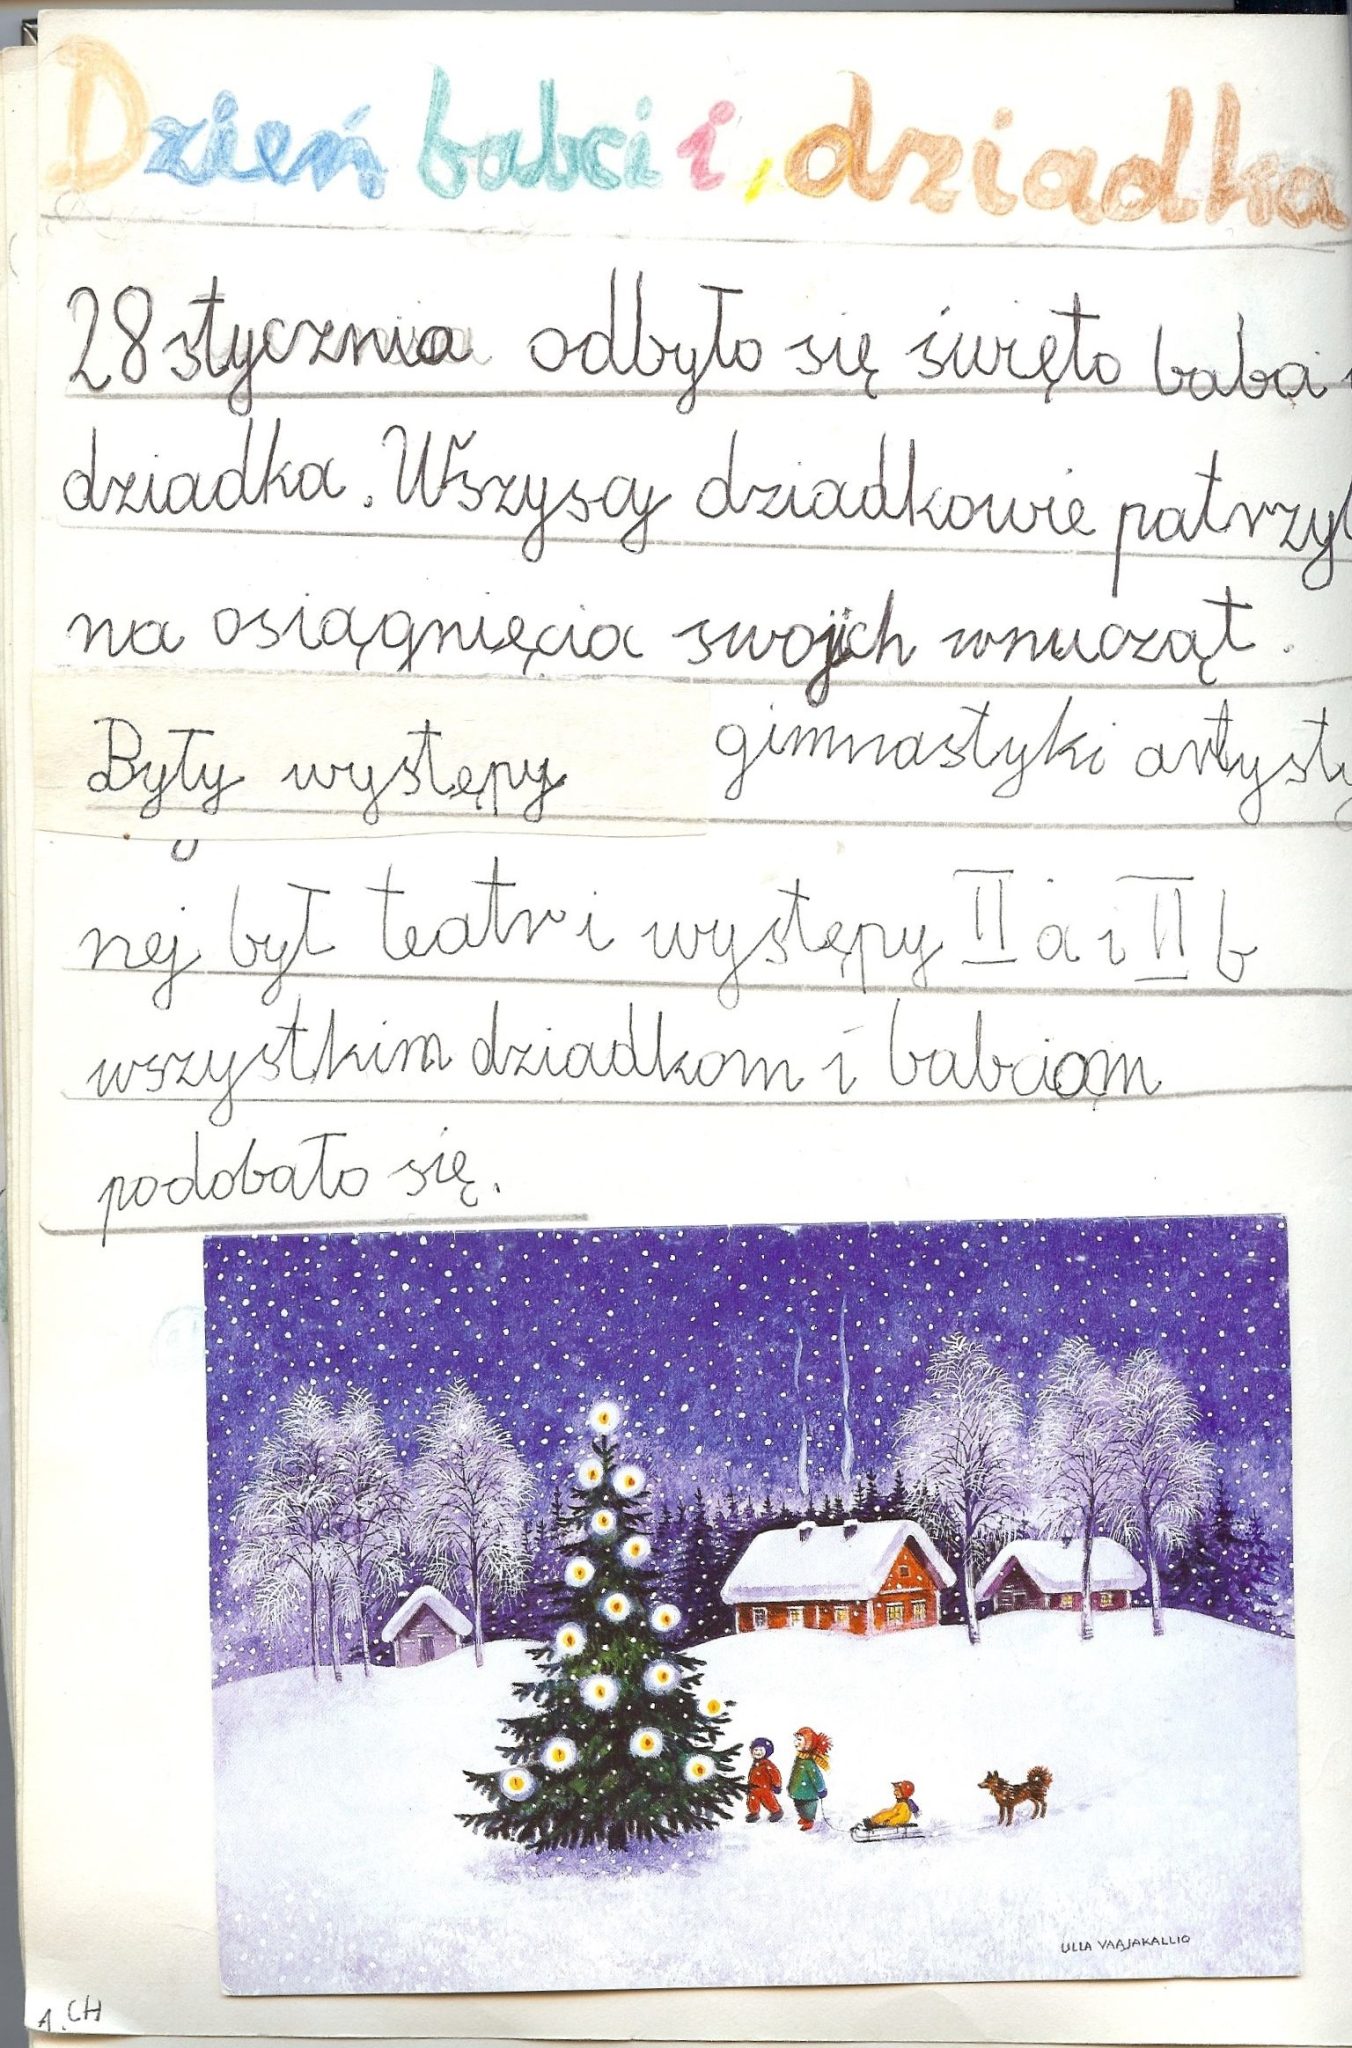 Dzień babci i dziadka
28 stycznia odbyło się święto babci i
dziadka. Wszyscy dziadkowie patrzyl
na osiągnięcia swojich wnucząt.
Były występy gimnastyki artysty
nej był teatr i występy II a i II b
wszystkim dziadkom i babciom
podobało się.
ULLA VAAJAKALLIO
A.CH